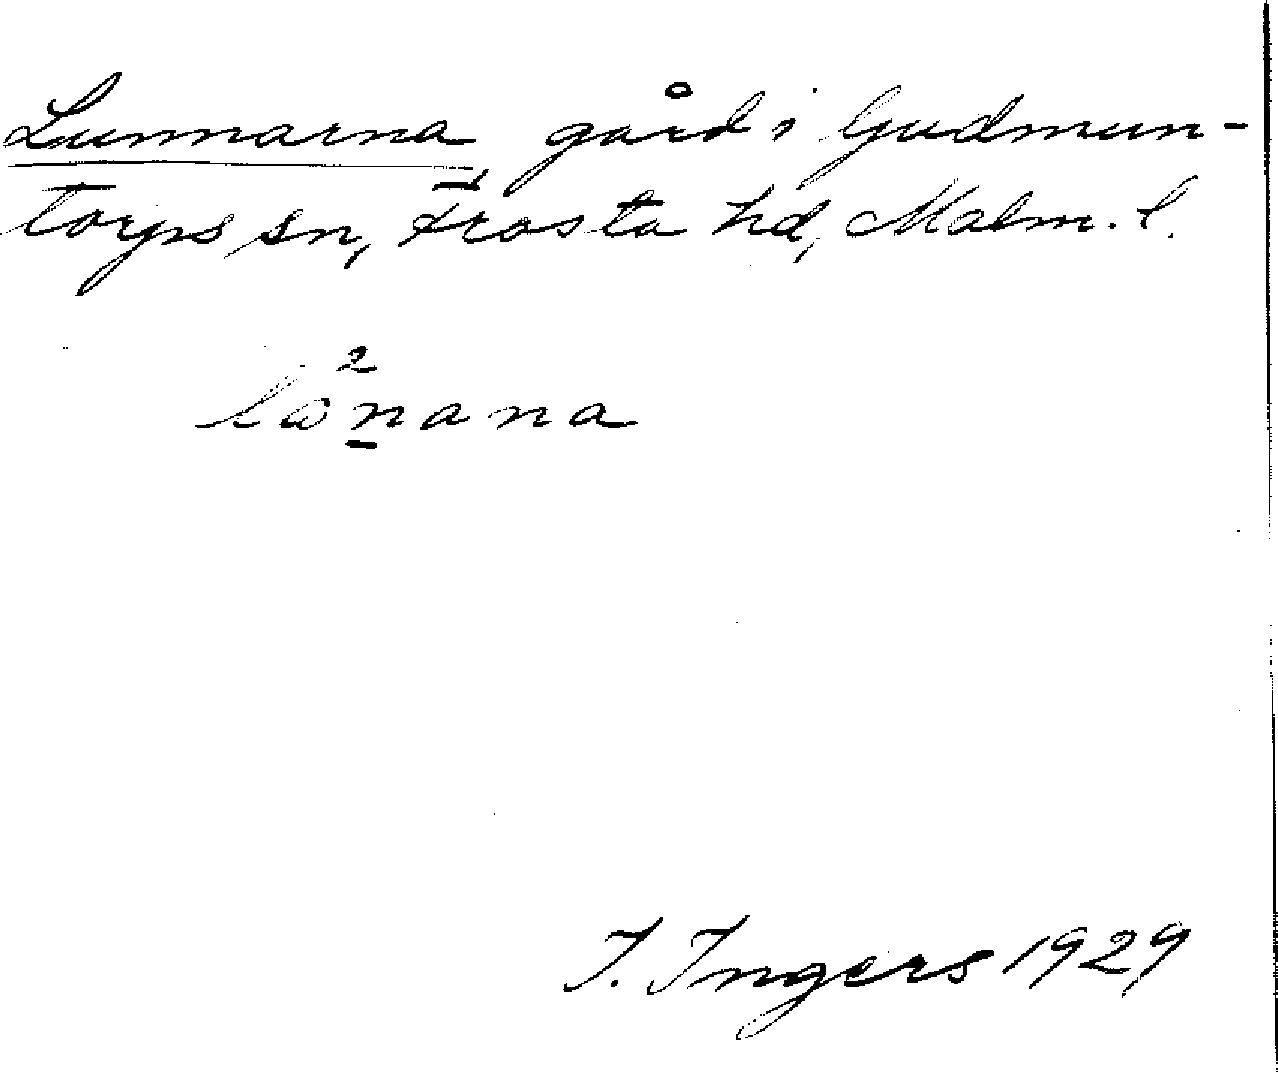 Lunnarna gård i Gudmun-
torps sn, Frosta hd, Malm. l.
I. Ingers 1929